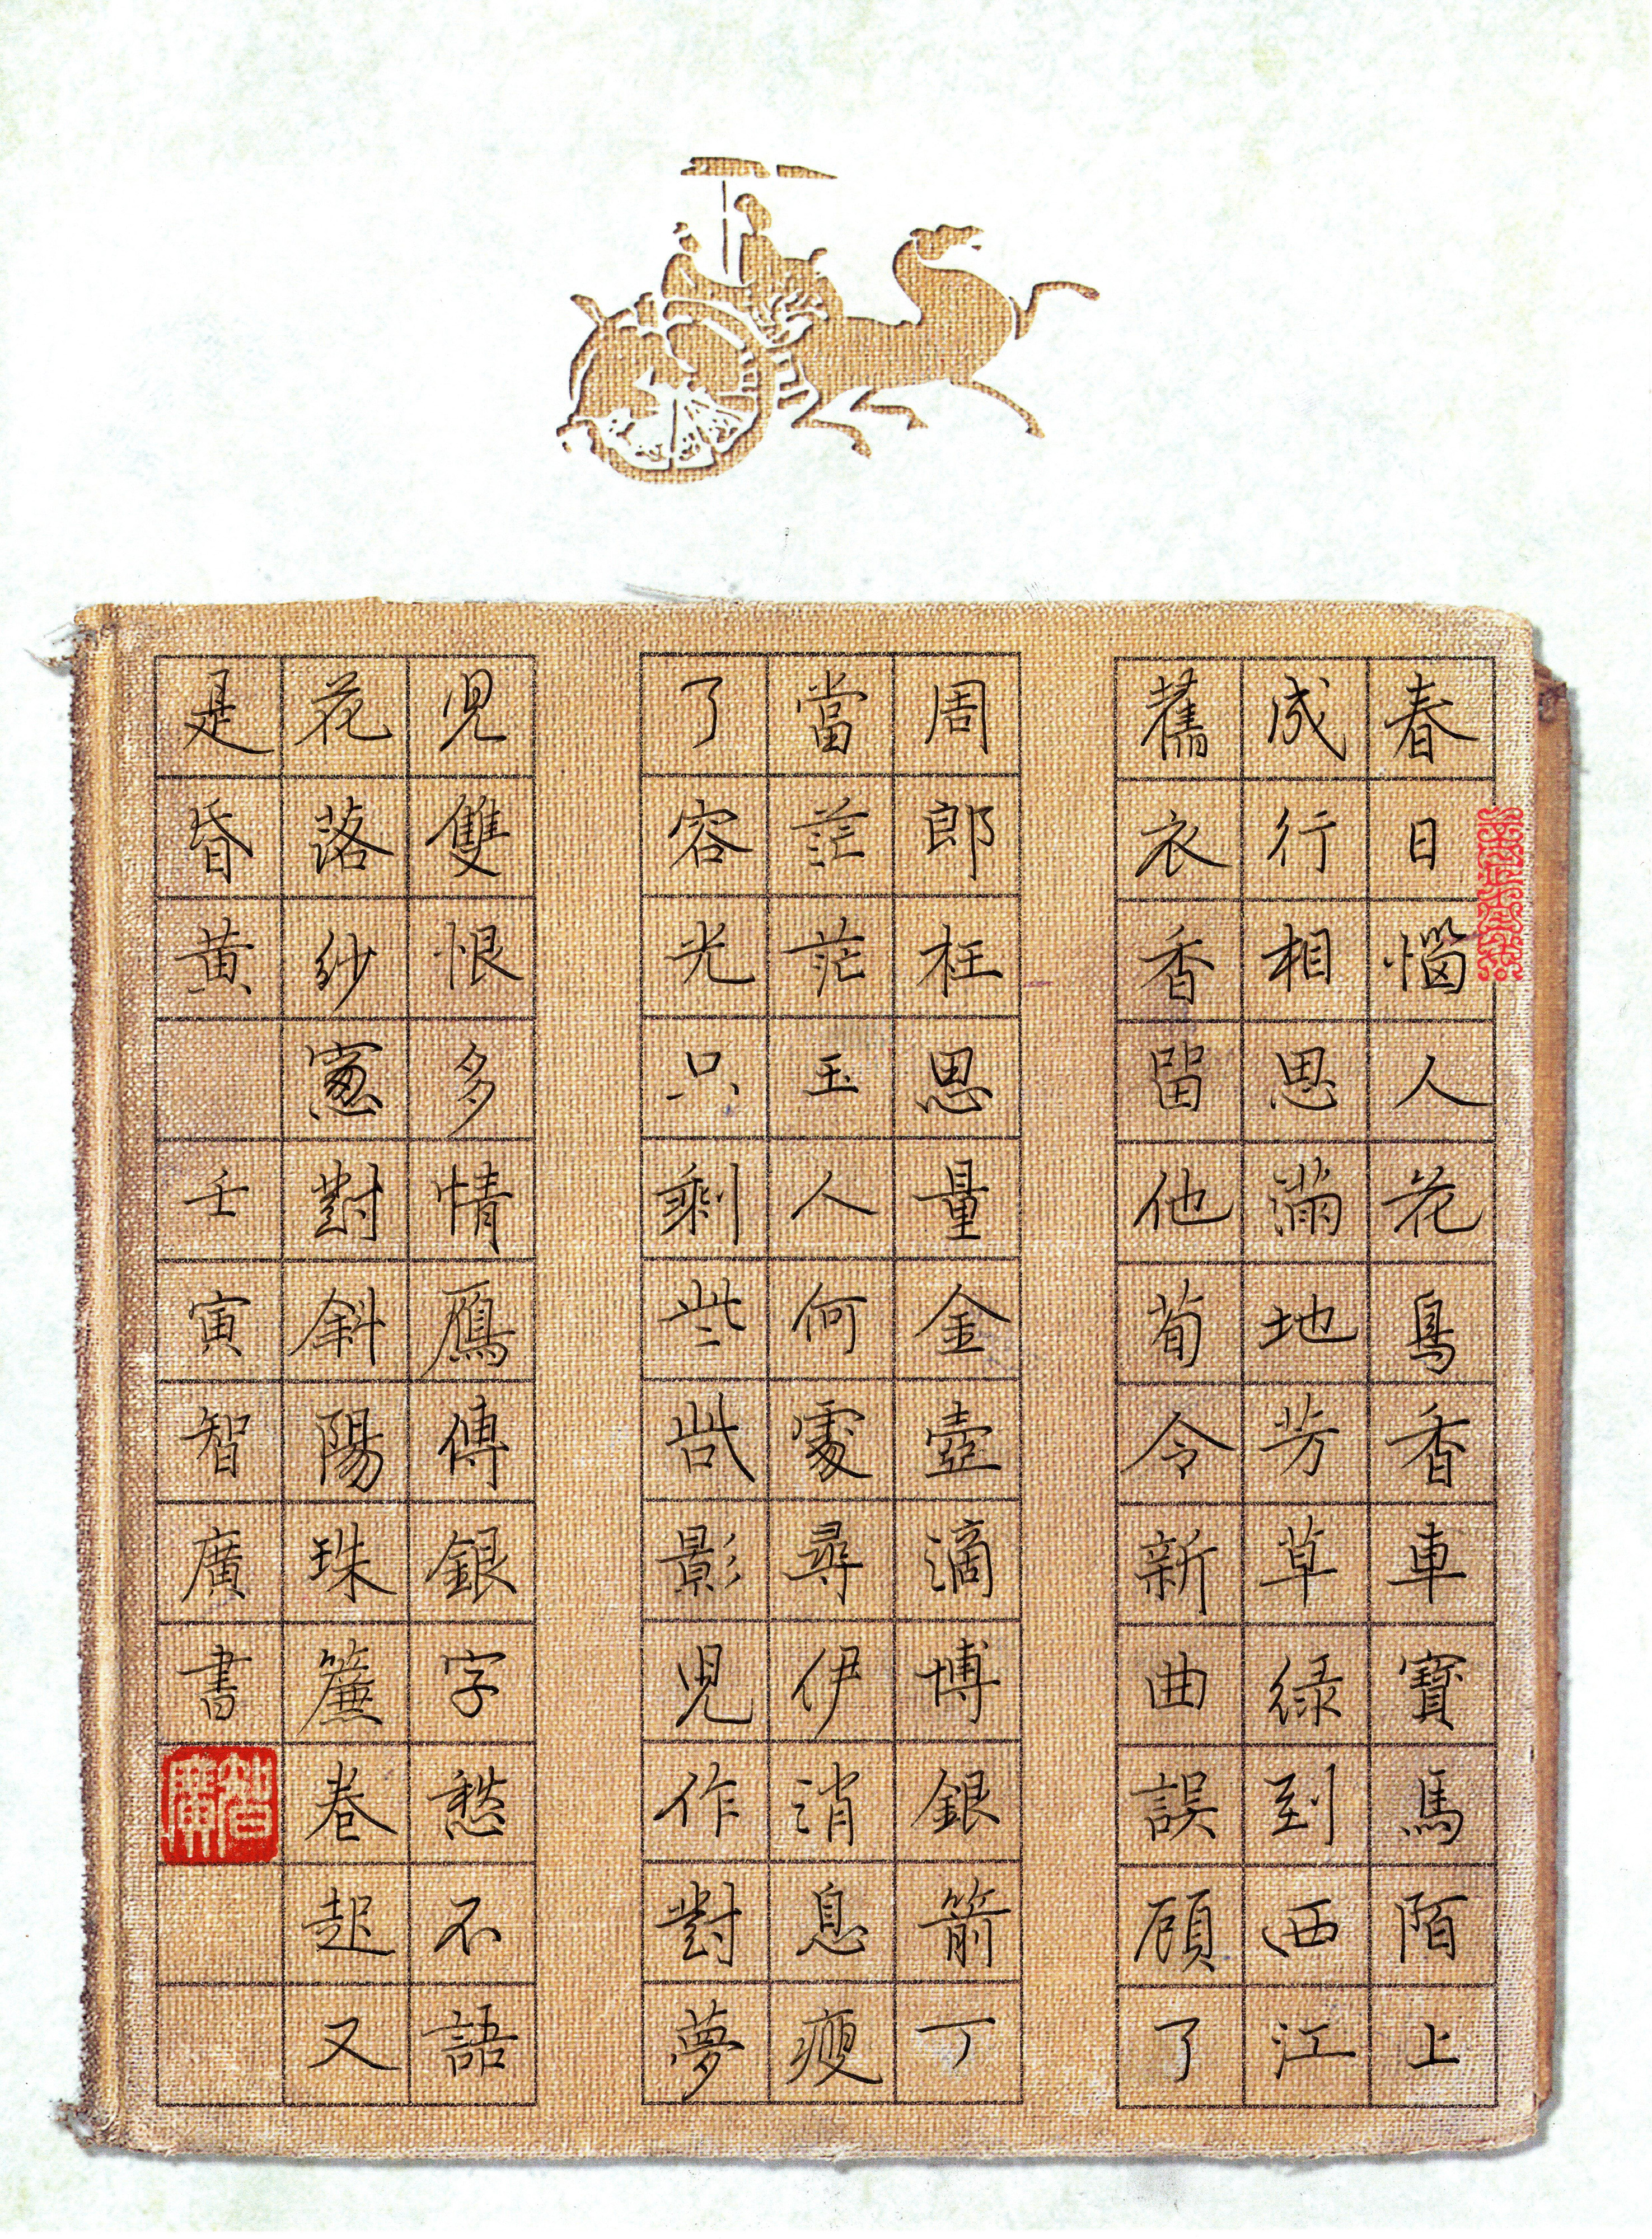 春日惱人花鳥香車寶馬陌上
成行相思滿地芳草緑到西江
舊衣香留他荀令新曲誤顧了
周郎枉思量金壺滴博銀箭丁
當茫茫玉人何處尋伊消息瘦
了容光只剩些哉影児作對夢
児雙恨多情鴈傳銀字愁不語
花落紗窻對斜陽珠簾卷起又
是昏黃
壬寅智廣書
智廣